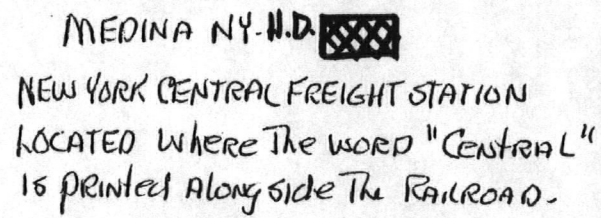 MEDINA NY-N.D.
NEW YORK CENTRAL FREIGHT STATION
LOCATED Where The WORD "CENTRAL"
IS PRINTED ALONGSIDE The RAILROAD.